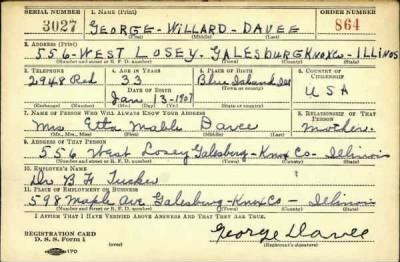 SERIAL NUMBER 1. NAME (Print) ORDER NUMBER
3027 GEORGE - WILLARD - DAVEE 864
(First) (Middle) (Last)
2. ADDRESS (Print)
556 - WEST LOSEY - GALESBURG KNOX CO - ILLINOIS
(Number and street or R. F. D. number) (Town) (County) (State)
3. TELEPHONE 4. AGE IN YEARS 5. PLACE OF BIRTH 6. COUNTRY OF CITIZENSHIP
2948 Red 33 Blue Island Ill
DATE OF BIRTH (Town or county)
Jan 13 - 1907 U S A
(Exchange) (Number) (Mo.) (Day) (Yr.) (State or country)
7. NAME OF PERSON WHO WILL ALWAYS KNOW YOUR ADDRESS 8. RELATIONSHIP OF THAT PERSON
Mrs Etta Mable Davee Mother
(Mr., Mrs., Miss) (First) (Middle) (Last)
9. ADDRESS OF THAT PERSON
556 West Losey Galesburg - Knox Co - Illinois
(Number and street or R. F. D. number) (Town) (County) (State)
10. EMPLOYER'S NAME
Dr B H Tucker
11. PLACE OF EMPLOYMENT OR BUSINESS
598 Maple Ave Galesburg - Knox Co - Illinois
(Number and street or R. F. D. number) (Town) (County) (State)
I AFFIRM THAT I HAVE VERIFIED ABOVE ANSWERS AND THAT THEY ARE TRUE.
REGISTRATION CARD
D. S. S. Form 1 George Davee
(Registrant's signature)